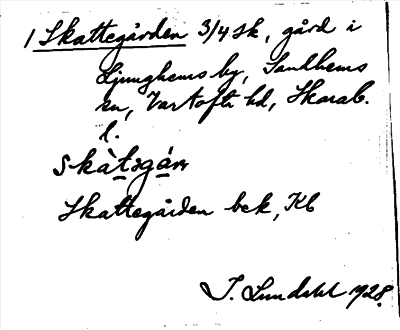 1 Skattegården 3/4 sk, gård i
Ljunghems by, Sandhems
sn, Vartofta hd, Skarab.
l.
skàtsgár
Skattegården bck, Kb
J. Lundahl 1928.